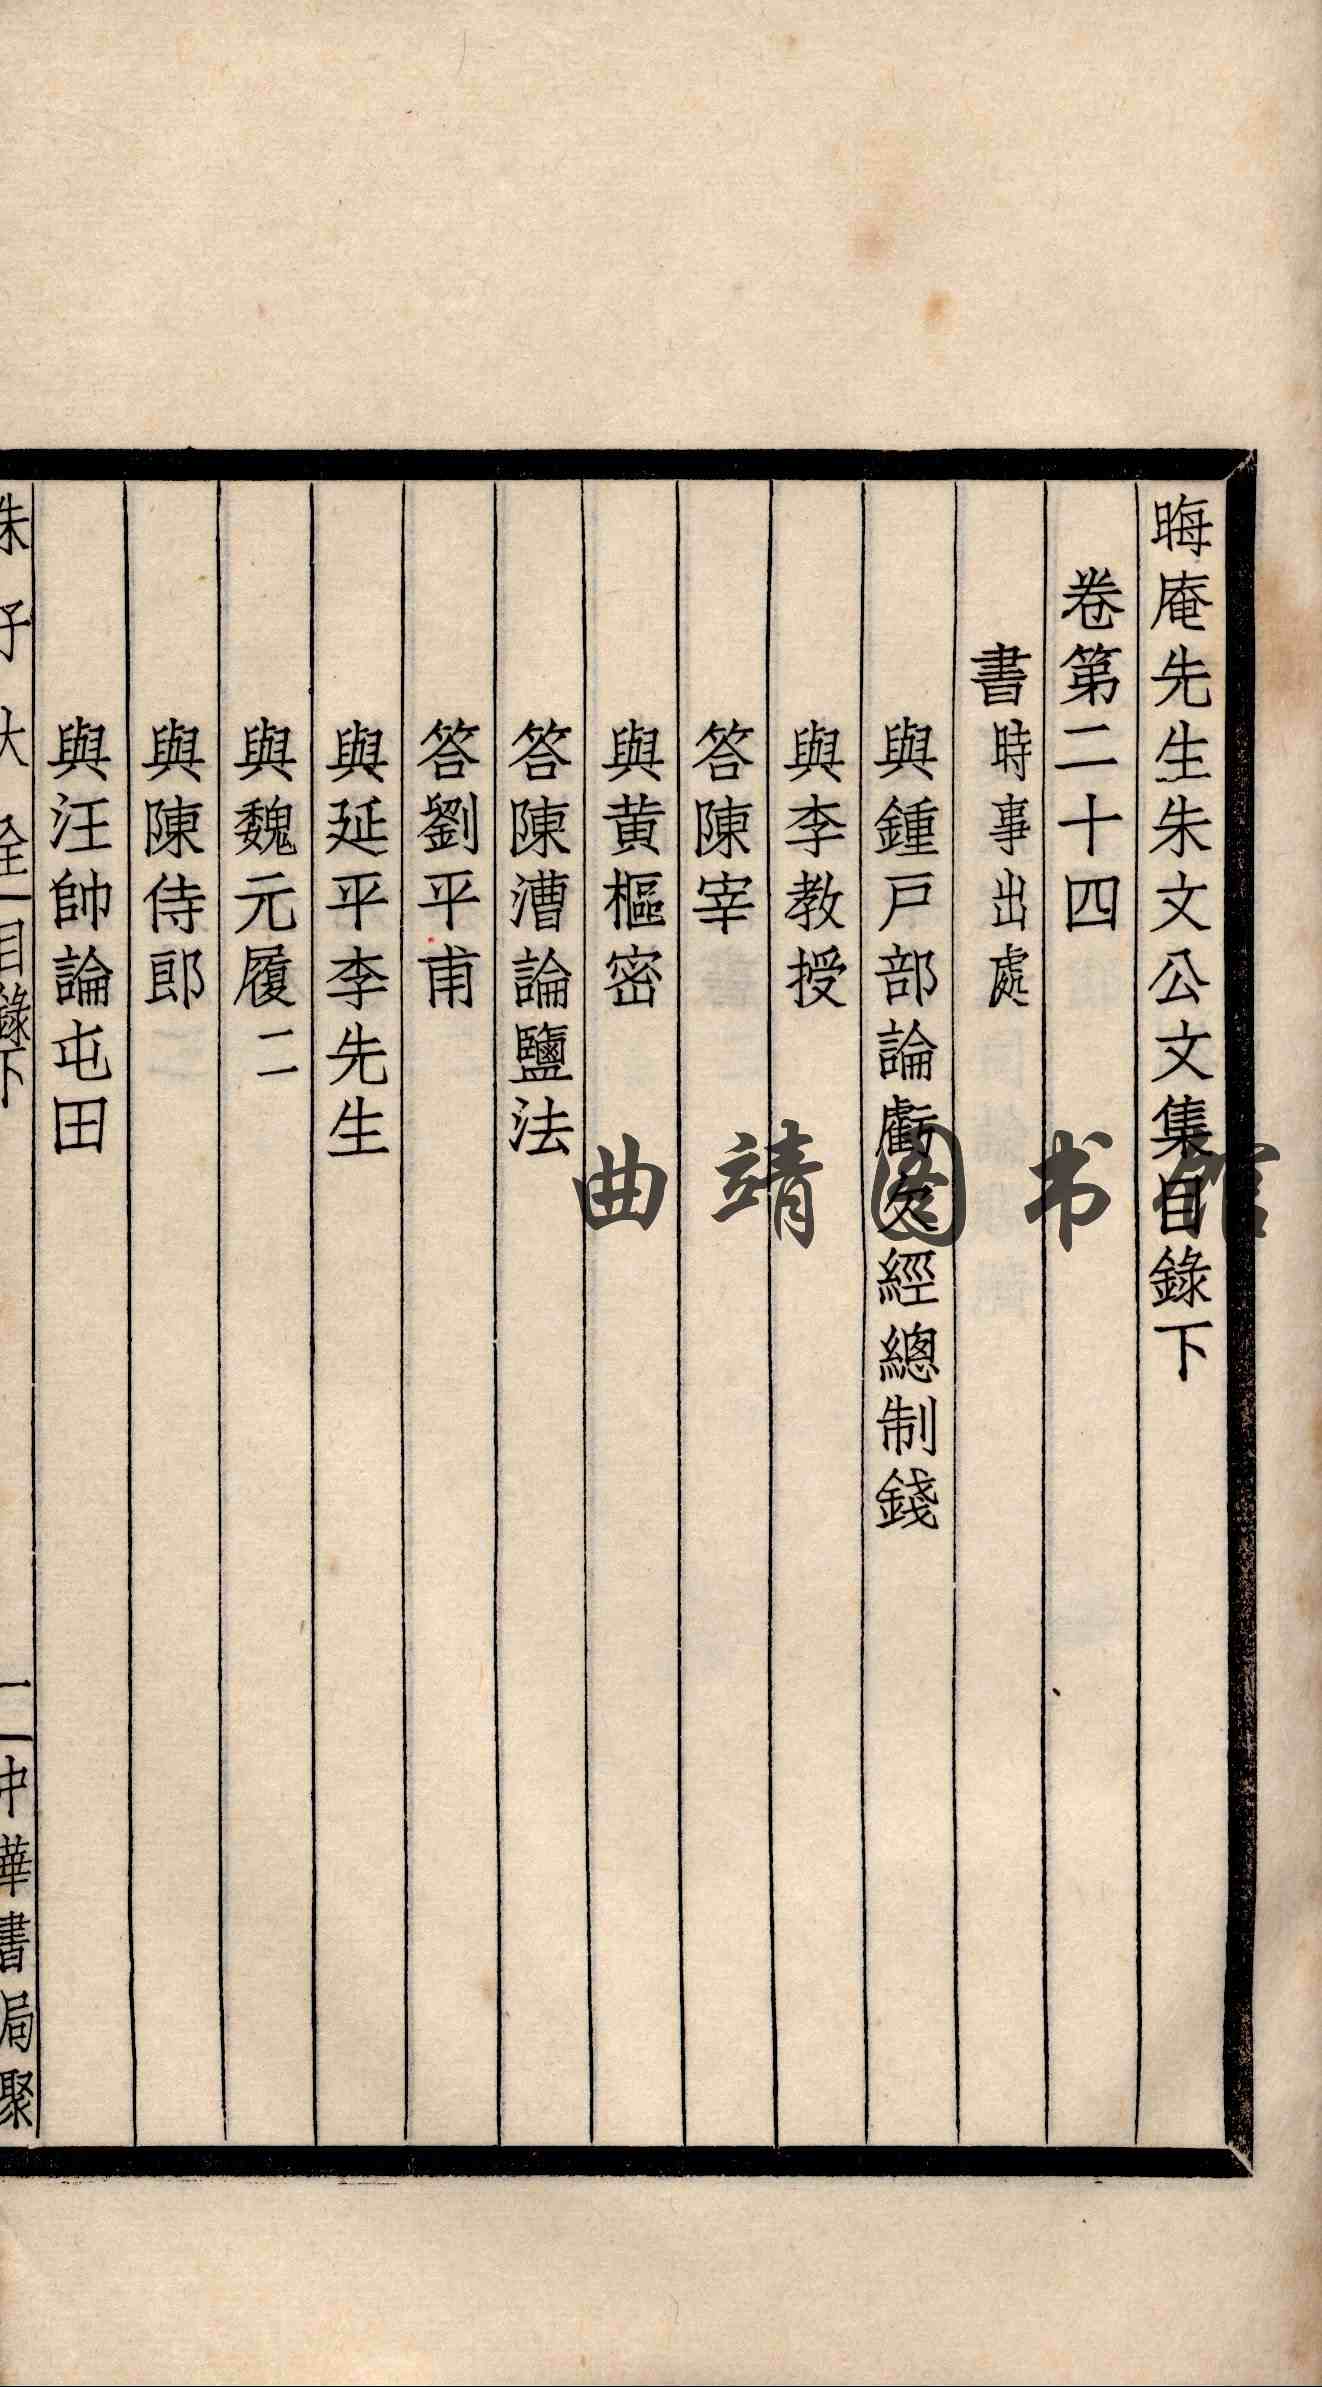 晦庵先生朱文公文集目錄下
卷第二十四
書時事出處
與鍾戸部論虧欠經總制錢
與李教授
答陳宰
與黃樞密
答陳漕論鹽法
答劉平甫
與延平李先生
與魏元履二
與陳侍郎
與汪帥論屯田
朱子大全目錄下 一 中華書局聚
曲靖图书馆